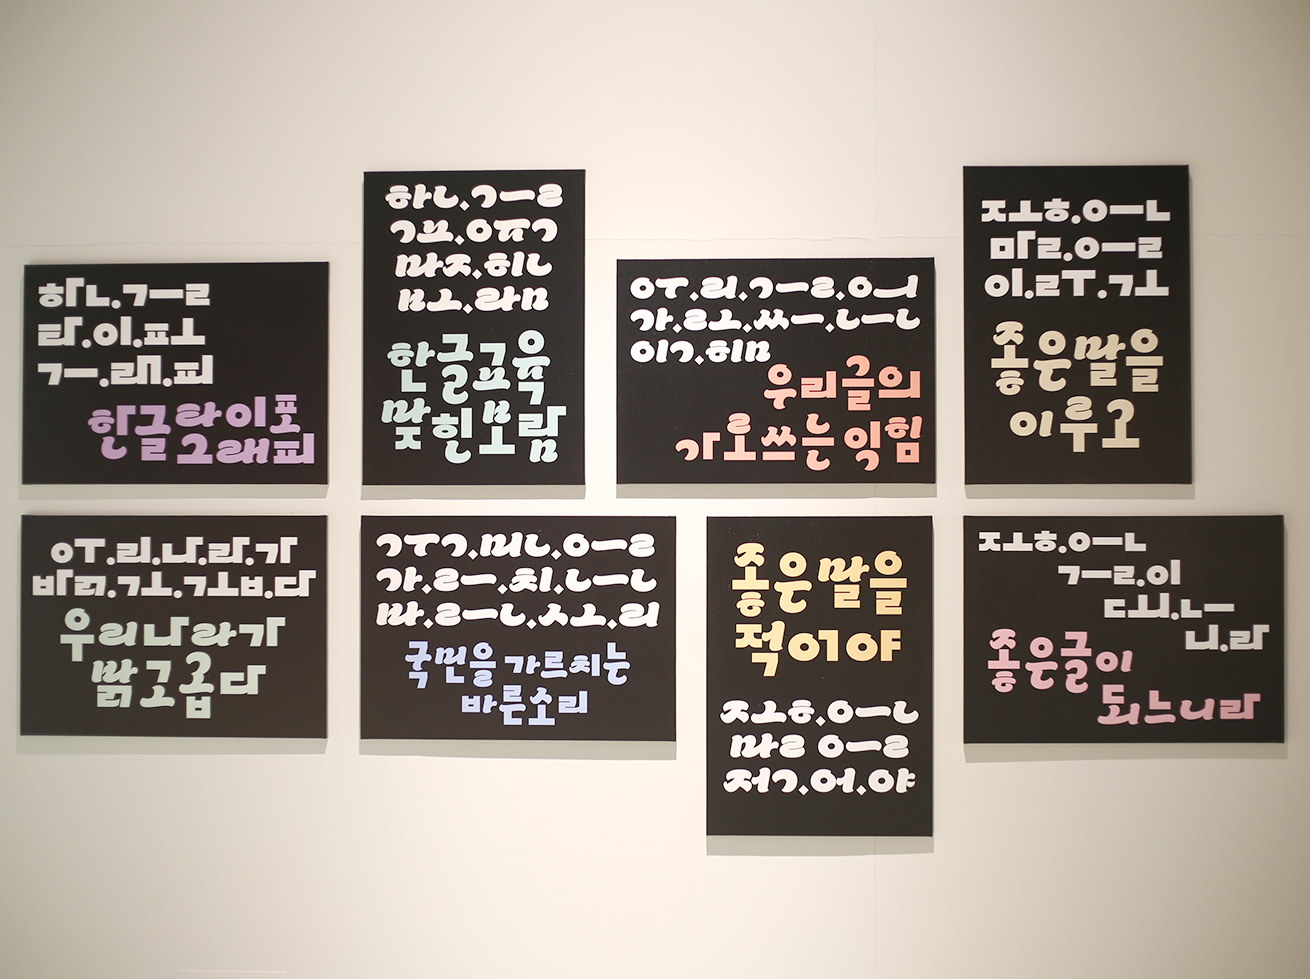 하ㄴ.ㄱㅡㄹ
라.이.ㅍㅗ
ㄱㅡ.래.피
한글라이포
그래피
하ㄴ.ㄱㅡㄹ
ㄱㅛ.ㅇㅠㄱ
마ㅈ.히ㄴ
ㅂㅗ.라ㅁ
한글교육
맞힌보람
ㅇㅜ.리.ㄱㅡㄹ.ㅇㅢ
가.ㄹㅗ.ㅆㅡ.ㄴㅡㄴ
이ㄱ.히ㅁ
우리글의
가로쓰는 익힘
ㅈㅗㅎ.ㅇㅡㄴ
마ㄹ.ㅇㅡㄹ
이.ㄹㅜ.ㄱㅗ
좋은말을
이루고
ㅇㅜ.리.나.라.가
바ㄺ.ㄱㅗ.ㄱㅗㅂ.다
우리나라가
밝고곱다
ㄱㅜㄱ.미ㄴ.ㅇㅡㄹ
가.ㄹㅡ.치.ㄴㅡㄴ
바.ㄹㅡㄴ.ㅅㅗ.리
국민을 가르치는
바른소리
좋은말을
적어야
ㅈㅗㅎ.ㅇㅡㄴ
마ㄹ ㅇㅡㄹ
저ㄱ.어.야
ㅈㅗㅎ.ㅇㅡㄴ
ㄱㅡㄹ.이
ㄷㅚ.ㄴㅡ
니.라
좋은글이
되느니라